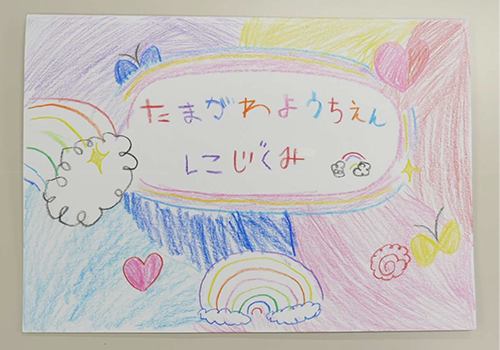 たまがわようちえん
にじくみ